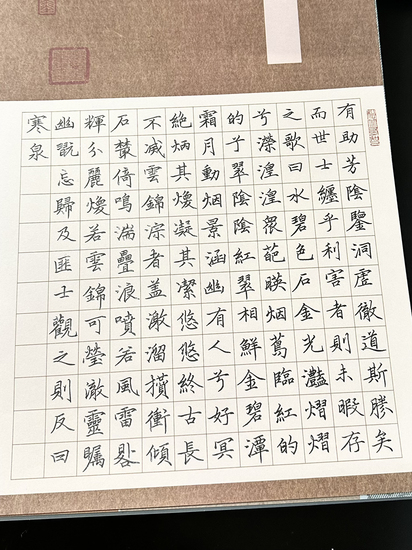 有助芳陰鑒洞虛徹道斯勝矣
而世士纏乎利害者則未暇存
之歌曰水碧色石金光灩熠熠
兮瀅湟湟隈葩暎烟蔦臨紅的
的兮翠陰陰紅翠相鮮金碧潭
霜月動烟景涵幽有人兮好冥
絕炳其煥凝其潔悠悠終古長
不滅雲錦淙者盖激溜攢衝傾
石藂倚鳴湍疊浪噴若風雷
輝分麗煥若雲錦可瑩澈靈矚
幽翫忘歸及匪士觀之則反曰
寒泉